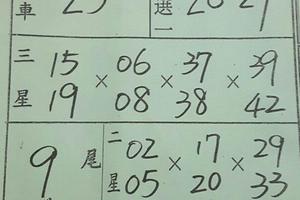 車 25 選一 2029
三 15 × 06 × 37 × 39
星 19 08 38 42
9 尾 二 02 × 17 × 29
星 05 20 33